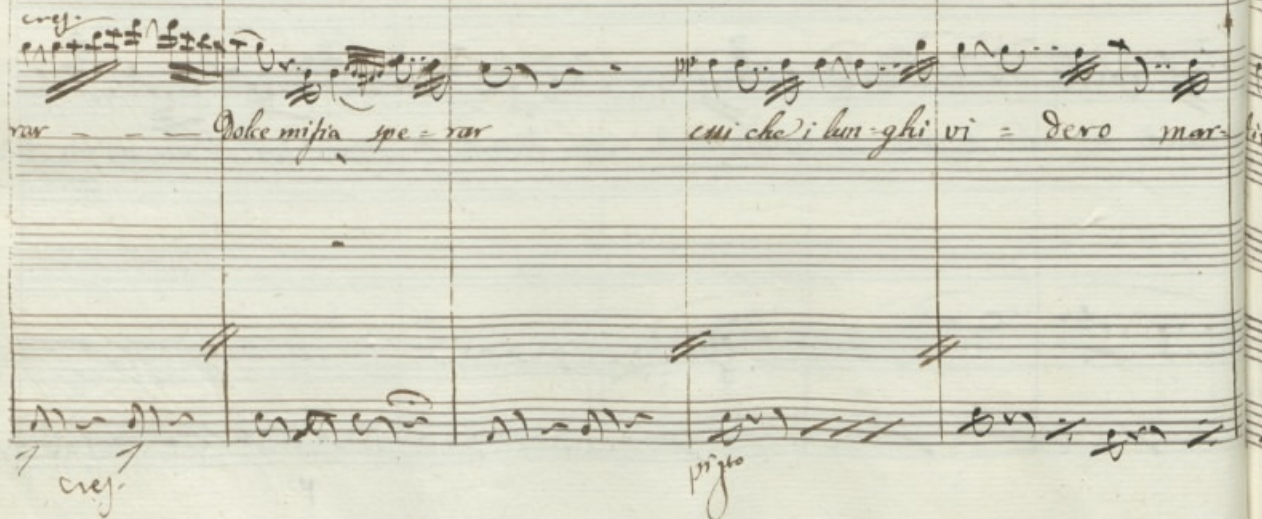 cres.
rar - - - Dolce missia spe = rar cui che i lun-ghi vi = dero mar-
cres.
pizto